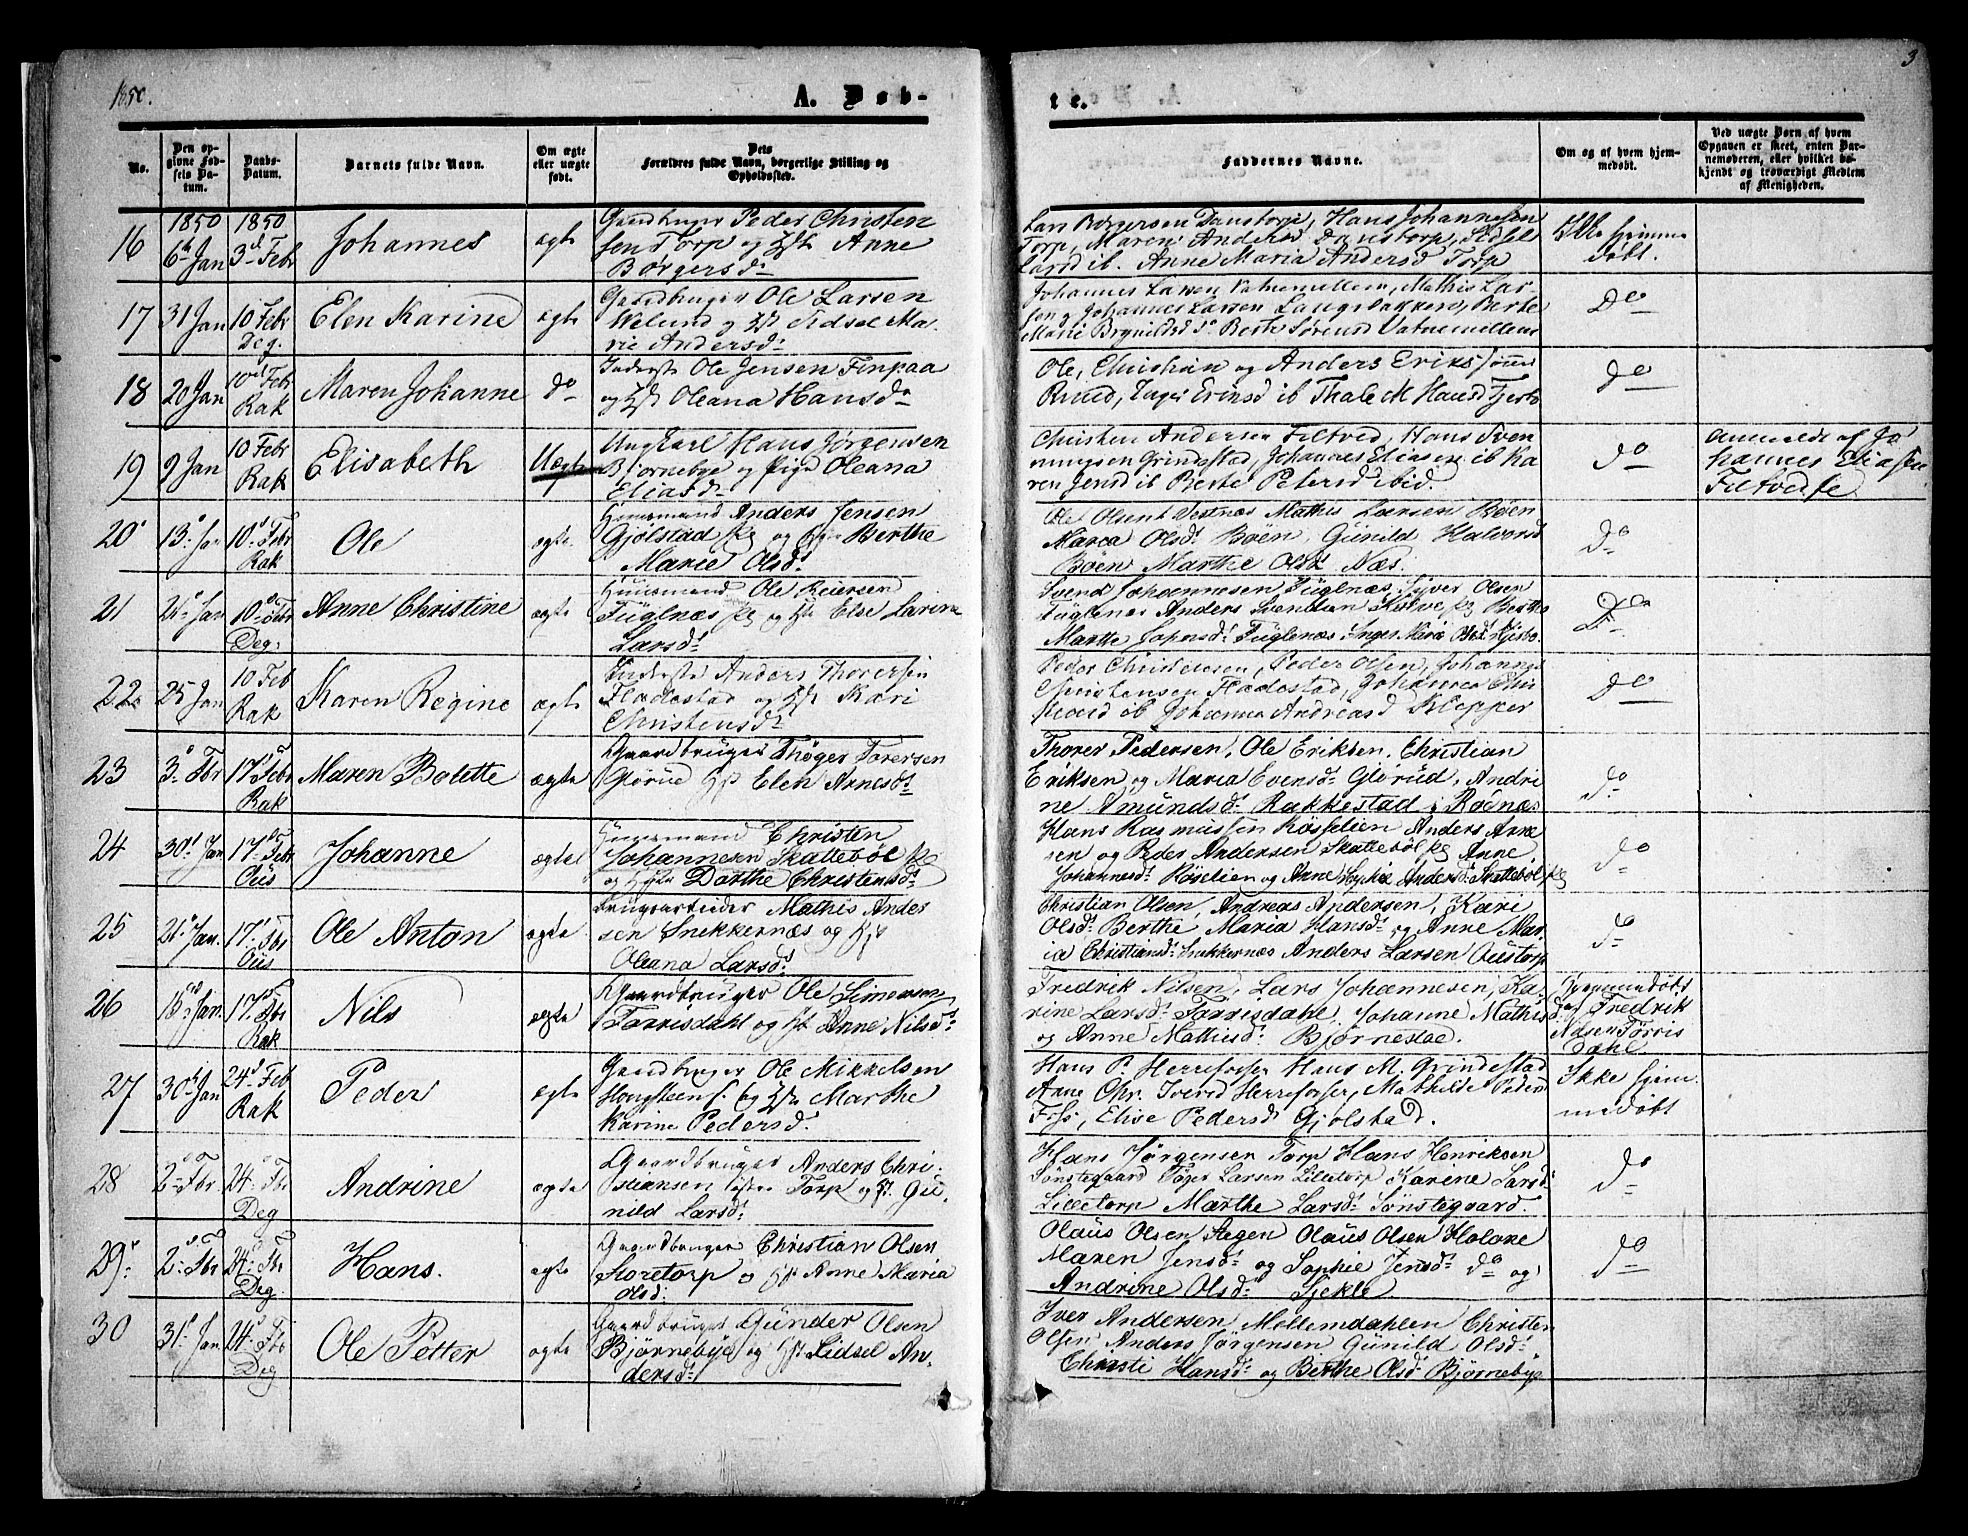 1850.
A. Døb-
te.
3
No.
Den op-
givne Fød-
sels Da-
tum.
Daabs-
Datum.
Barnets fulde Navn.
Om ægte
eller uægte
født.
Dets
Forældres fulde Navn, borgerlige Stilling og
Opholdssted.
Faddernes Navne.
Om og af hvem hjem-
medøbt.
Ved uægte Børn af hvem
Opgaven er skeet, enten Bar-
nemoderen, eller hvilket be-
kjendt og troværdigt Medlem
af Menigheden.
16
1850
6te Jan
1850
3d Febr
Johannes
ægte
Gaardbruger Peder Christen
sen Torp og Hst Anne
Børgersd
Lars Børgersen Danstorp, Hans Johannesen
Torp, Maren Andersd Danstorp, Sidsel
Larsd ib. Anne Maria Andersd Torp
Ikke hjemme
døbt.
17
31 Jan
10 Febr
Deg.
Elen Karine
ægte
Gaardbruger Ole Larsen
Welund og Hst Sidsel Ma-
rie Andersd
Johannes Larsen Vatnemellem, Mathis Lar-
sen og Johannes Larsen Langsbakken, Berte
Marie Brynildsd Berte Sørensd Vatnemellem
Do
18
20 Jan
10d Febr
Rak
Maren Johanne
do
Inderst Ole Jensen Finpaa
og Hst Oleana Hansd
Ole, Christian og Anders Erikssønner
Ruud, Inger Eriksd ib Thale M Hansd
Do
19
9 Jan
10 Febr
Rak
Elisabeth
Uægte
Ungkarl Hans Jørgensen
Bjørnebye og Pige Oleana
Eliasd
Christen Andersen Filtved, Hans Sven
ningsen Grindestad, Johannes Eliasen ib Ka
ren Jensd ib Berte Petersd ibid.
Do
anmeldt af Jo
hannes Eliasen
Filtvedt
20
13 Jan
10 Febr
Rak
Ole
ægte
Huusmand Anders Jensen
Gjølstad og Berthe
Marie Olsd
Ole Olsen Vestnæs Mathis Larsen Bøen
Maria Olsd Bøen, Gunild Halvorsd
Bøen Marthe Olsd Næs.
Do
21
21 Jan
10 Febr
Deg.
Anne Christine
ægte
Huusmand Ole Reiersen
Füglnæs og Hst Else Larine
Larsd
Svend Johannesen Füglnæs, Syver Olsen
Füglenæs Anders Svendsen Berthe
Marthe Johnsd Füglenæs Inger Marie
Do
22
25 Jan
10 Feb
Rak
Karen Regine
ægte
Inderste Anders Thoresen
Fladestad og Hst Kari
Christensd
Peder Christensen, Peder Olsen, Johannes
Christensen Fladestad, Johanne Chri
stensd ib Johanne Andreasd Klepper
Do
23
3 Fbr
17 Febr
Rak
Maren Bolette
ægte
Gaardbruger Thøger Torersen
Glorud Hst Elen Arnesd
Thorer Pedersen, Ole Eriksen, Christian
Eriksen og Maria Evensd Glorüd, Andri
ne Amundsd Rakkestad i Rognæs
do
24
30 Jan
17 Febr
Ous
Johanne
ægte
Huusmand Christen
Johannesen Skattebøl
og Hst Dorthe Christensd
Hans Rasmussen Røsselien Anders Arne
sen og Peder Andersen Skattebøl Anne
Johannesd Røselien og Anne Andersd Skattebøl
do
25
21 Jan.
17 Fbr
Ous
Ole Anton
ægte
Brugsarbeider Mathis Anders
sen Snekkernæs og Hst
Oleana Larsd
Christian Olsen, Andreas Andersen, Kari
Olsd Berthe Maria Hansd og Anne Mar-
ia Christiansd Snekkernæs Anders Larsen Oustorp
do
26
15 Jan.
17 Fbr
Rak
Nils
ægte
Gaardbruger Ole Simensen
Torrisdahl og Hst Anne Nilsd
Fredrik Nilsen, Lars Johannesen, Ka-
rine Larsd Torrisdahl, Johanne Mathisd
og Anne Mathisd Bjørnestae.
Hjemmedøbt
af Fredrik
Nilsen Torris
dahl
27
30 Jan
24 Feb
Rak
Peder
ægte
Gaardbruger Ole Mikkelsen
og Hst Marthe
Karine Pedersd
Hans P. Herreforser Hans M. Grindestad
Anne Chr. Iversd Herreforser, Mathilde Pedersd
Foss, Elise Pedersd Gjølstad.
Ikke hjem
medøbt
28
2 Fbr.
24 Fbr
Deg
Andrine
ægte
Gaardbruger Anders Chri-
stiansen Torp og Hst Gu-
nild Larsd
Hans Jørgensen Torp Hans Henriksen
Sønstegaard Tøger Larsen Lilletorp Karine Larsd
Lilletorp Marthe Larsd Sønstegaard.
do
29
2 Fbr
24 Fbr
Deg
Hans.
ægte
Gaardbruger Christian Olsen
Storetorp og Hst Anne Maria
Olsd
Olaüs Olsen Olaüs Olsen Holane
Maren Jensd og Sophie Jensd do og
Andrine Olsd Sjekle
do
30
31 Jan
24 Fbr
Deg
Ole Petter
ægte
Gaardbruger Günder Olsen
Bjørnebye og Hst Sidsel An-
dersd
Iver Andersen Mellemdahlen Christen
Olsen Anders Jørgensen Günild Olsd
Christi Hansd og Berthe Olsd Bjørnebye